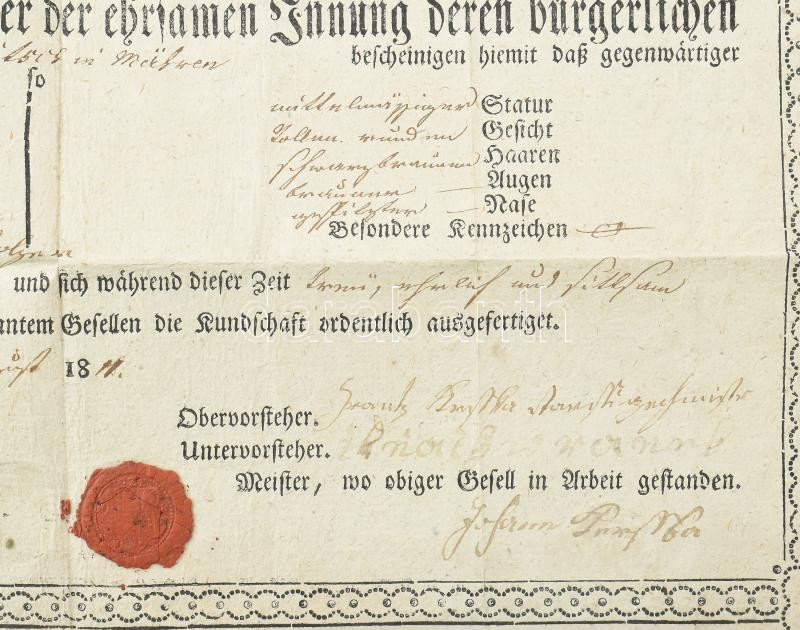 er der ehrsamen Innung deren bürgerlichen
in Mähren bescheinigen hiemit daß gegenwärtiger
so
mittelmäßiger Statur
Vollen runden Gesicht
schwarzbraunen Haaren
brauner Augen
gespitzter Nase
Besondere Kennzeichen
und sich während dieser Zeit treu, ehrlich und sittsam
antem Gesellen die Kundschaft ordentlich ausgefertiget.
darabanth
ust 1811.
Obervorsteher. Frantz
Untervorsteher. Ignatz
Meister, wo obiger Gesell in Arbeit gestanden.
Johann